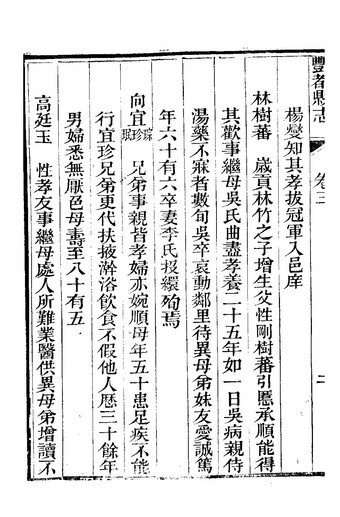 酆都縣志 卷三 二
楊變知其孝拔冠軍入邑庠
林樹蕃 歲貢林竹之子增生父性剛樹蕃引慝承順能得
其歡事繼母吳氏曲盡孝養二十五年如一日吳病親侍
湯藥不寐者數旬吳卒哀動鄰里待異母弟妹友愛誠篤
年六十有六卒妻李氏投繯殉焉
向宜琮珍珉 兄弟事親皆孝婦亦婉順母年五十患足疾不能
行宜珍兄弟更代扶掖澣浴飲食不假他人歷三十餘年
男婦悉無厭色母壽至八十有五
高廷玉 性孝友事繼母處人所難業醫供異母弟增讀不